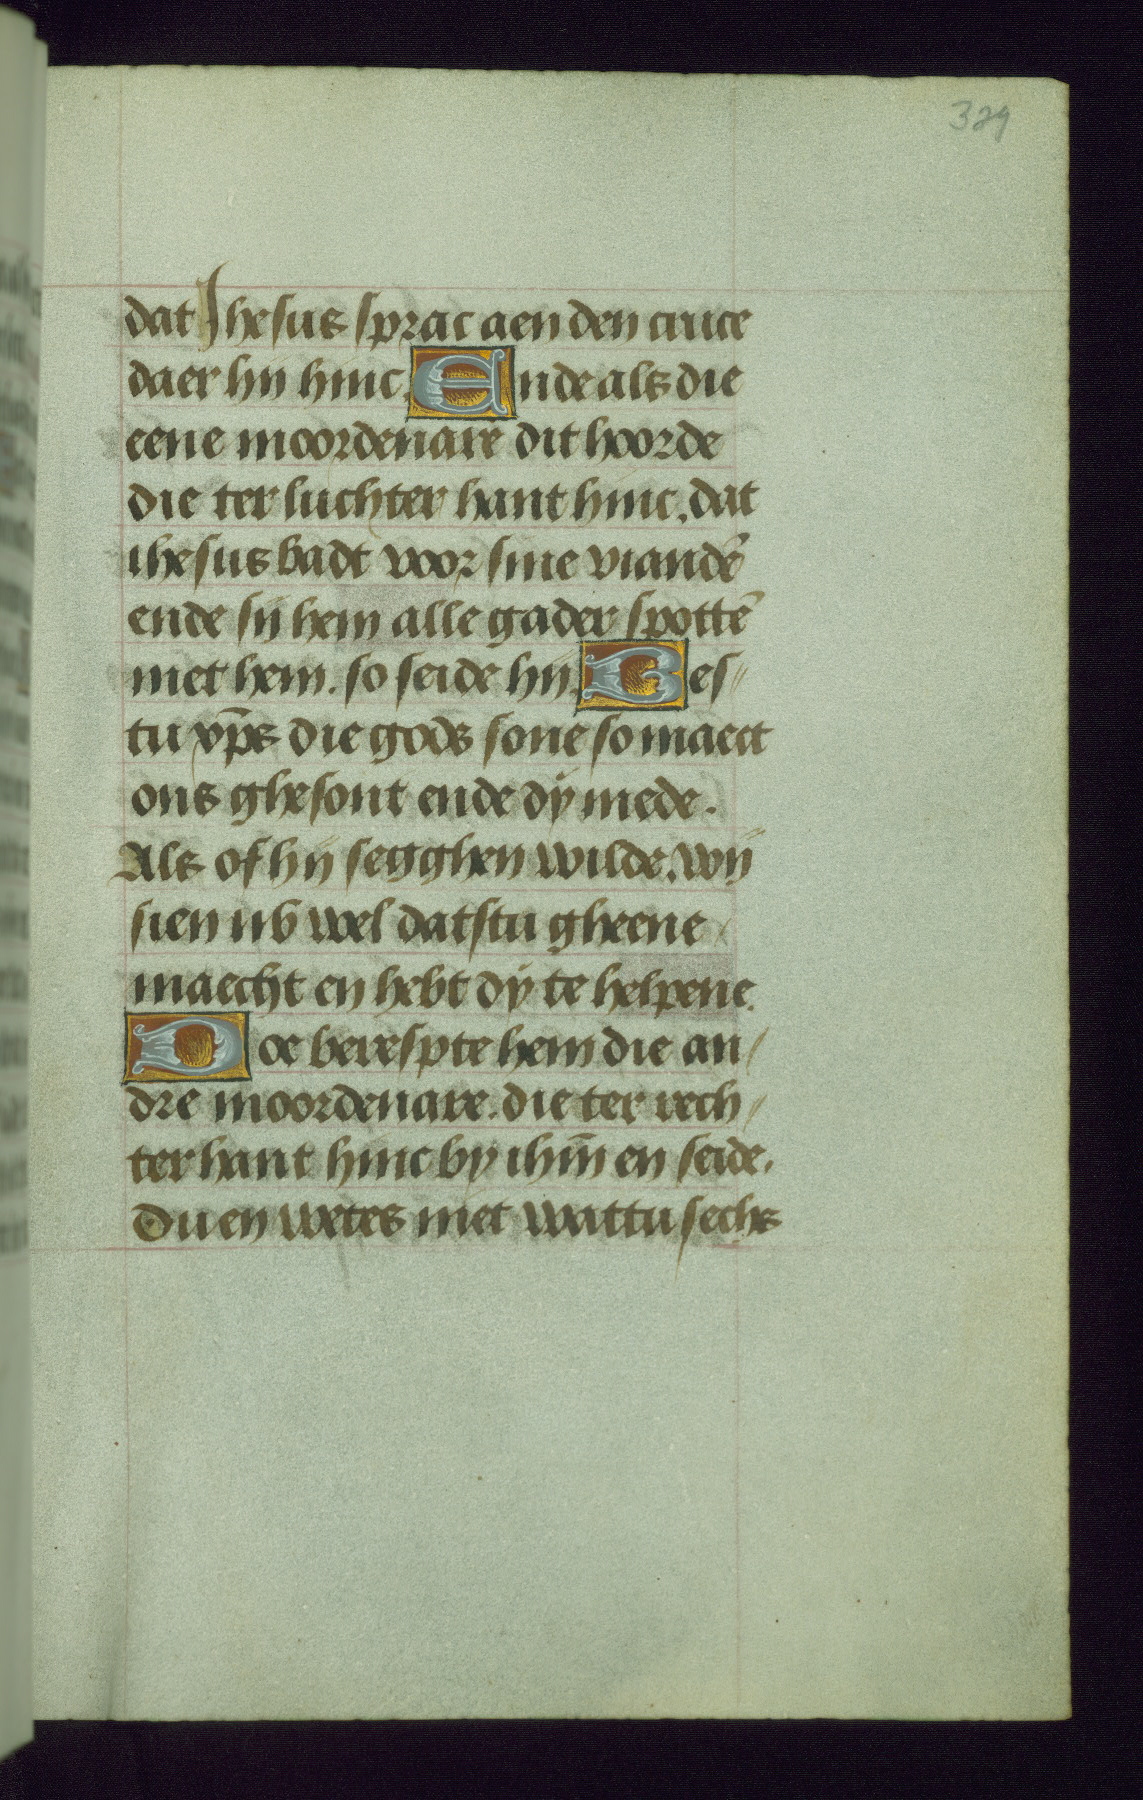 329
dat Jhesus sprac aen den cruce
daer hij hinc. Ende als die
eene moordenare dit hoorde
die ter luchter hant hinc. dat
ihesus badt voor sine viandē
ende sij hem alle gader spottē
met hem. so seide hij. Bes-
tu xp̄s die gods sone so maect
ons ghesont ende dy mede.
Als of hij segghen wilde. wij
sien nv wel datstu gheene
maecht en hebt dy te helpene.
Doe berespte hem die an-
dre moordenare. die ter rech-
ter hant hinc by ihm̄ en seide.
Du en wetes niet wattu sechs